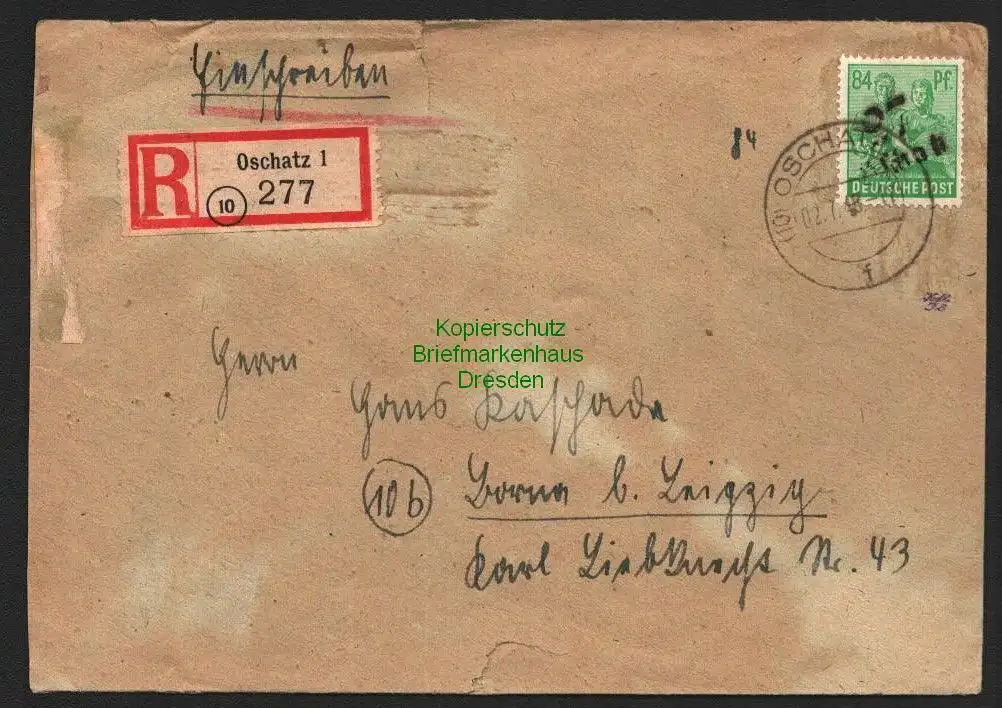 Einschreiben
R
Oschatz 1
10
277
84
84 Pf.
DEUTSCHE POST
OSCHATZ
f
Kopierschutz
Briefmarkenhaus
Dresden
Herrn
Hans Kaschade
10b Borna b. Leipzig
Karl Liebknecht Str. 43